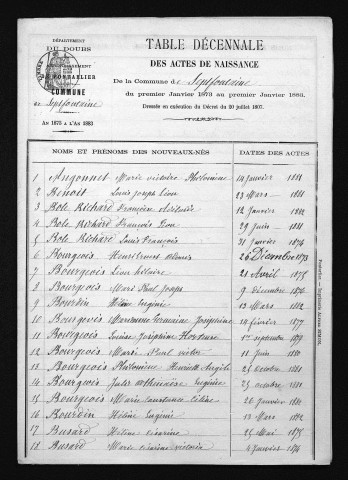 DÉPARTEMENT
DU DOUBS
ARRONDISSEMENT
DE PONTARLIER
COMMUNE
de Septfontaine
AN 1873 A L'AN 1883
TABLE DÉCENNALE
DES ACTES DE NAISSANCE
De la Commune de Septfontaine
du premier Janvier 1873 au premier Janvier 1883.
Dressée en exécution du Décret du 20 juillet 1807.
NOMS ET PRÉNOMS DES NOUVEAUX-NÉS DATES DES ACTES
1 Angonnet Marie victoire Philomène 14 Janvier 1881
2 Benoit Louis Joseph Léon 23 Mars 1881
3 Bole Richard Françoise 12 Janvier 1882
4 Bole Richard François Léon 29 Juin 1881
5 Bole Richard Louis François 31 Janvier 1874
6 Bourgeois Henri Ernest 26 Décembre 1873
7 Bourgeois Léon hilaire 21 Avril 1875
8 Bourgeois Marie Paul Joseph 9 décembre 1876
9 Bourdin Hélène Eugénie 13 Mars 1882
10 Bourgeois Marianne Germaine Joséphine 14 février 1877
11 Bourgeois Louise Joséphine Hortense 1er septembre 1879
12 Bourgeois Marie Paul victor 11 Juin 1880
13 Bourgeois Philomène Henriette Angèle 25 octobre 1881
14 Bourgeois Jules Eugénie 25 octobre 1881
15 Bourgeois Marie constance Céline 26 Janvier 1882
16 Bourdin Hélène Eugénie 13 Mars 1882
17 Busard Hélène Césarine 25 Mai 1875
18 Busard Marie Césarine victoire 4 Janvier 1874
Pontarlier